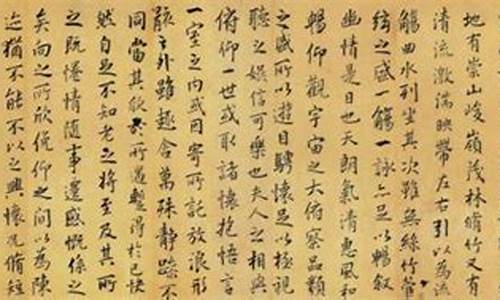 地有崇山峻嶺茂林脩竹又有
清流激湍映帶左右引以為流
觴曲水列坐其次雖無絲竹管
絃之盛一觴一詠亦足以暢敘
幽情是日也天朗氣清惠風和
暢仰觀宇宙之大俯察品類
之盛所以遊目騁懷足以極視
聽之娛信可樂也夫人之相與
俯仰一世或取諸懷抱悟言
一室之內或因寄所託放浪形
骸之外雖趣舍萬殊靜躁不
同當其欣於所遇蹔得於己快
然自足不知老之將至及其所
之既惓情隨事遷感慨係之
矣向之所欣俛仰之間以為陳
迹猶不能不以之興懷況脩短